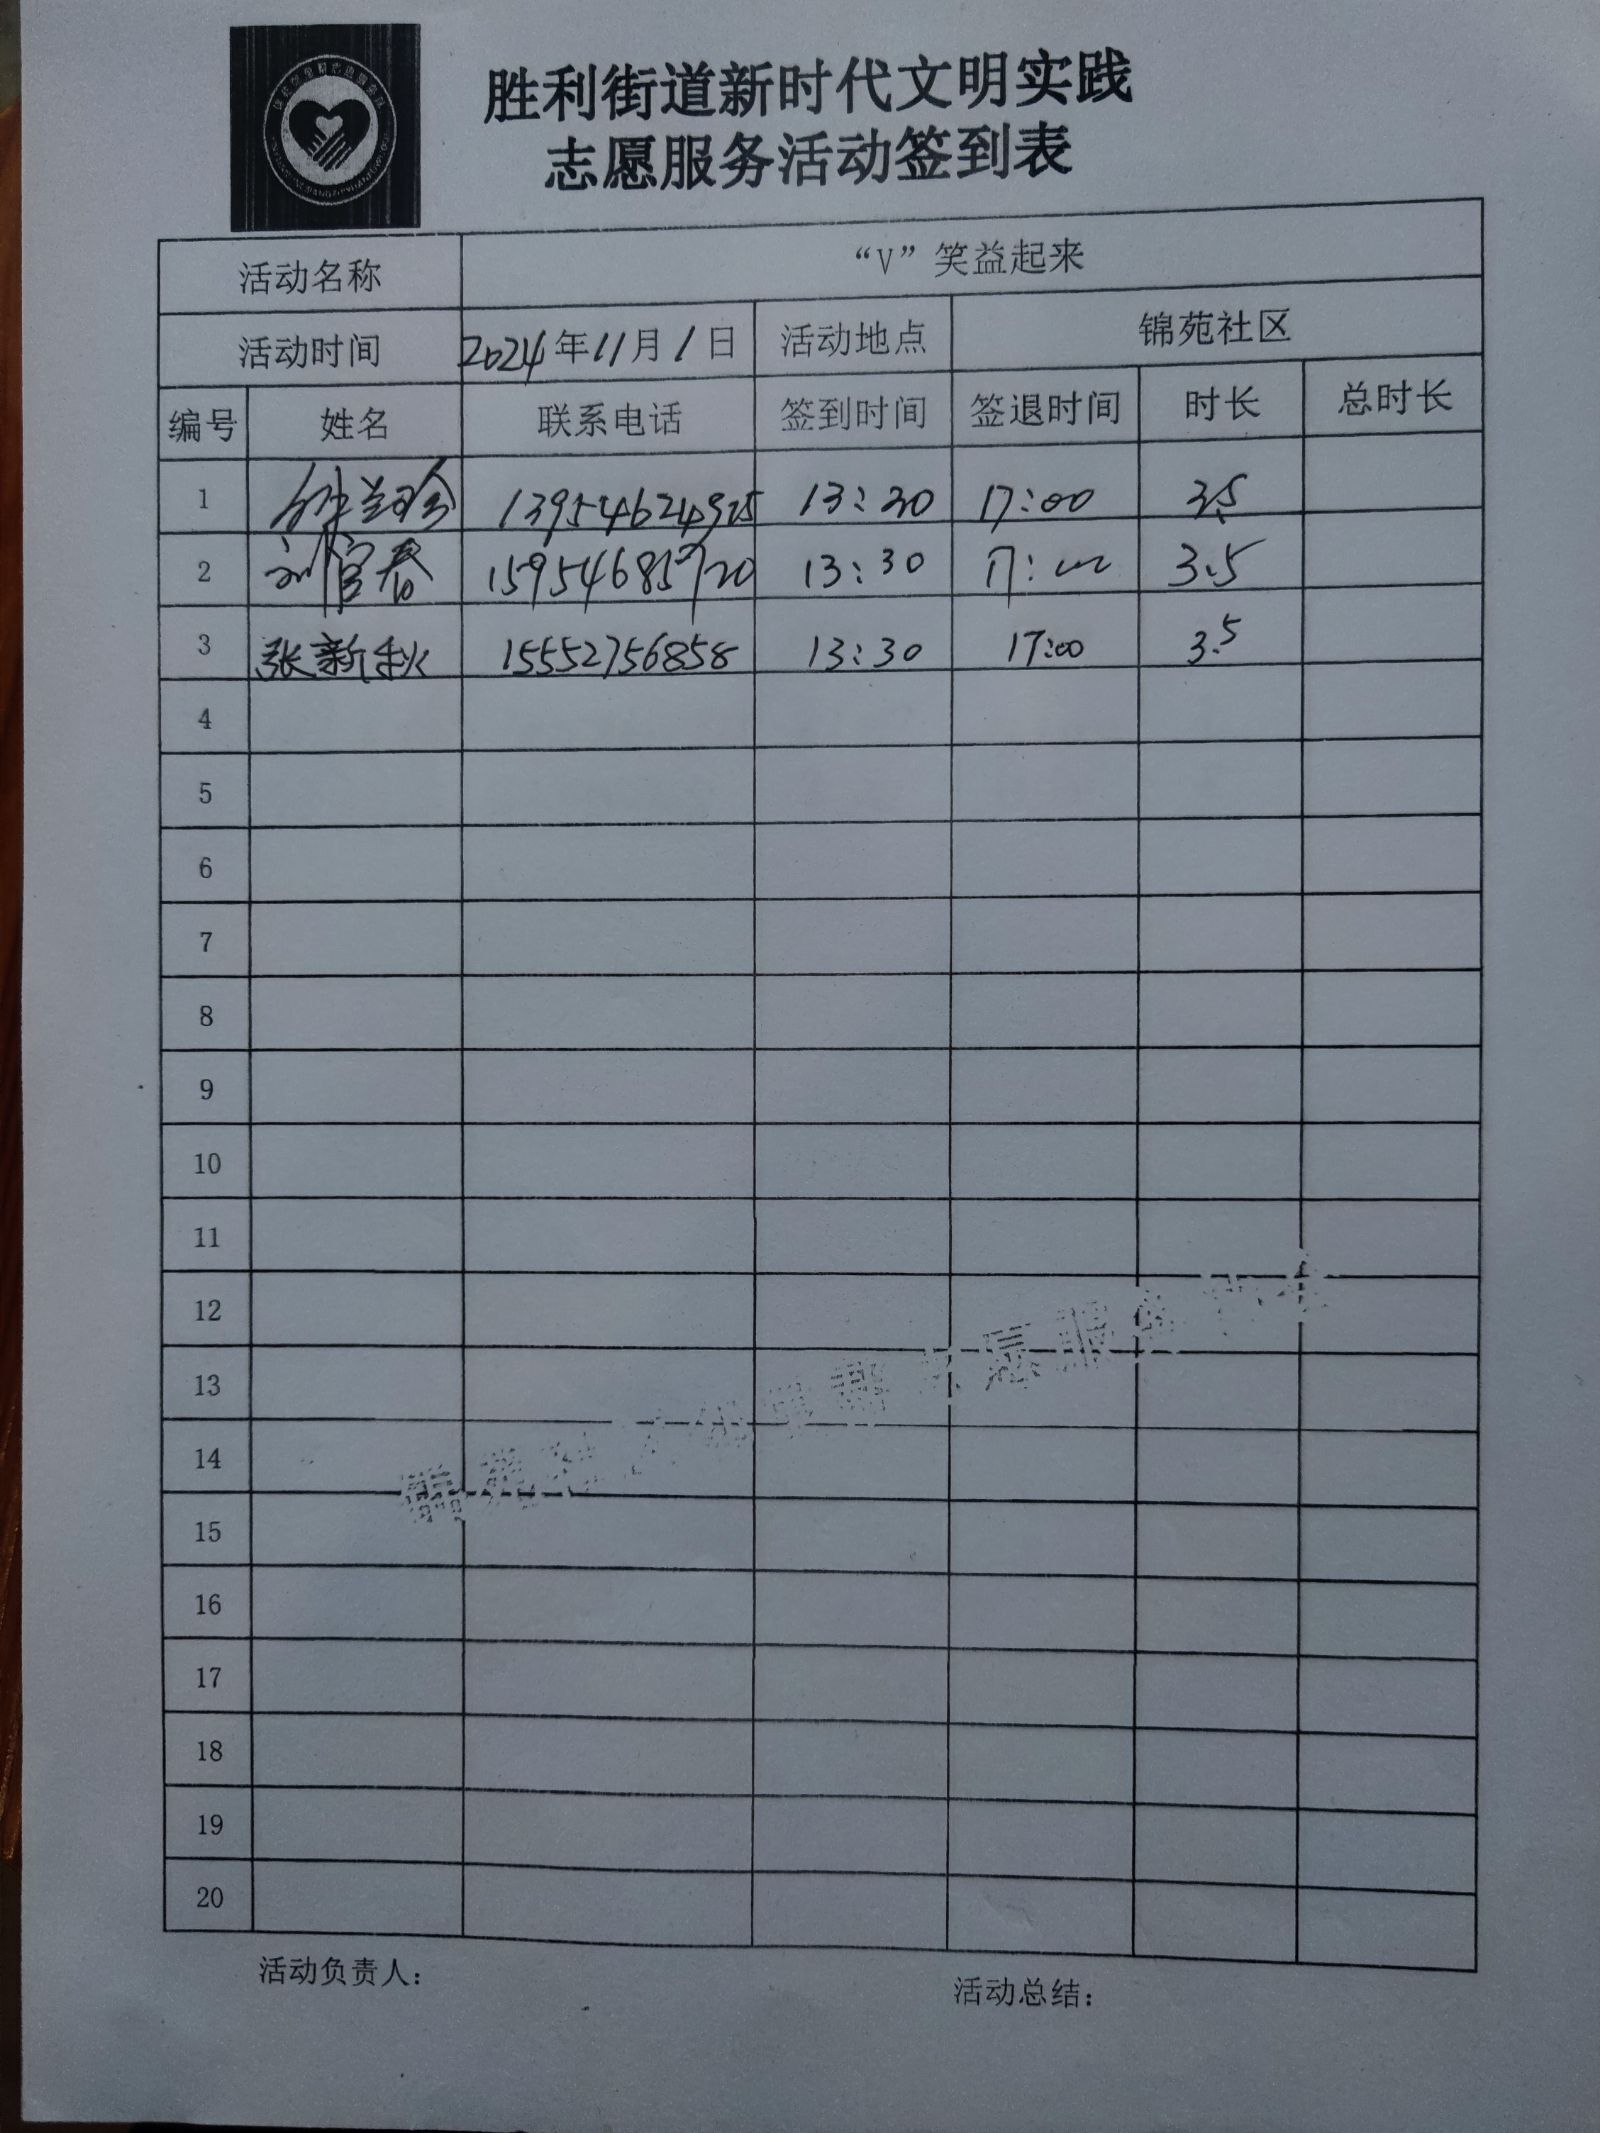 胜利街道新时代文明实践
志愿服务活动签到表
活动名称 “V”笑益起来
活动时间 2024年11月1日 活动地点 锦苑社区
编号 姓名 联系电话 签到时间 签退时间 时长 总时长
1 13954624925 13:30 17:00 3.5
2 刘宜春 13:30 17:00 3.5
3 张新秋 15552756858 13:30 17:00 3.5
4
5
6
7
8
9
10
11
12
13
14
15
16
17
18
19
20
活动负责人： 活动总结：